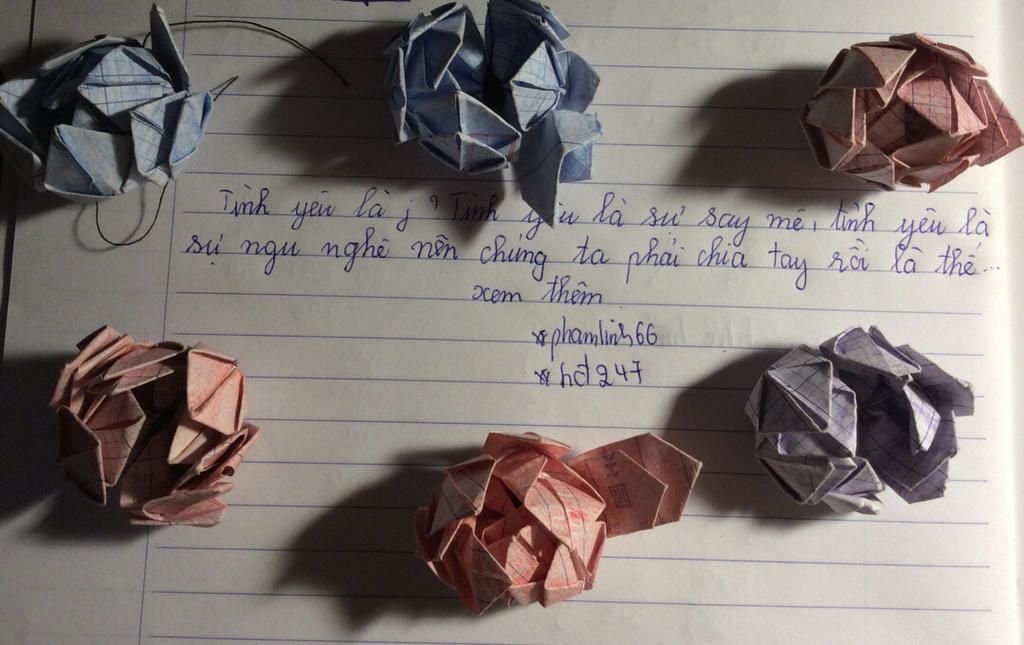 Tình yêu là j? Tình yêu là sự say mê, tình yêu là
sự ngu nghê nên chúng ta phải chia tay rồi là thế...
xem thêm
*phamlinh66
*hđ247